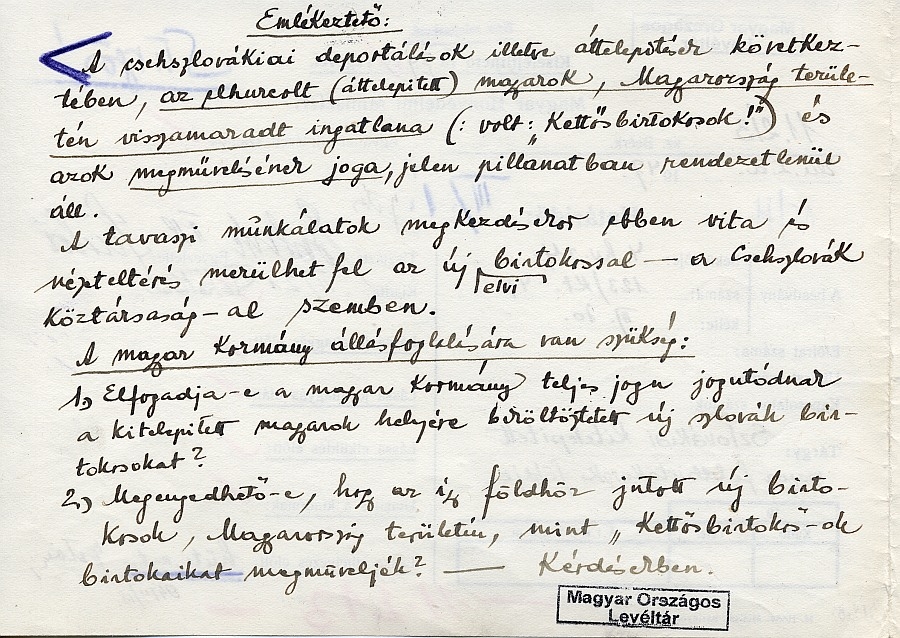 Emlékeztető:
A csehszlovákiai deportálások illetve áttelepitések következ-
tében, az elhurcolt (áttelepitett) magyarok, Magyarország terüle-
tén visszamaradt ingatlana (: volt: „Kettősbirtokosok!”) és
azok megművelésének joga, jelen pillanatban rendezetlenül
áll.
A tavaszi munkálatok megkezdésekor ebben vita és
nézeteltérés merülhet fel az új birtokossal — a Csehszlovák
elvi
Köztársaság-al szemben.
A magyar Kormány állásfoglalására van szükség:
1., Elfogadja-e a magyar Kormány teljes jogu jogutódnak
a kitelepitett magyarok helyére beköltöztetett új szlovák bir-
tokosokat?
2., Megengedhető-e, hogy az igy földhöz jutott új birto-
kosok, Magyarország területén, mint „Kettősbirtokos-ok
birtokaikat megműveljék? — Kérdésekben.
Magyar Országos
Levéltár